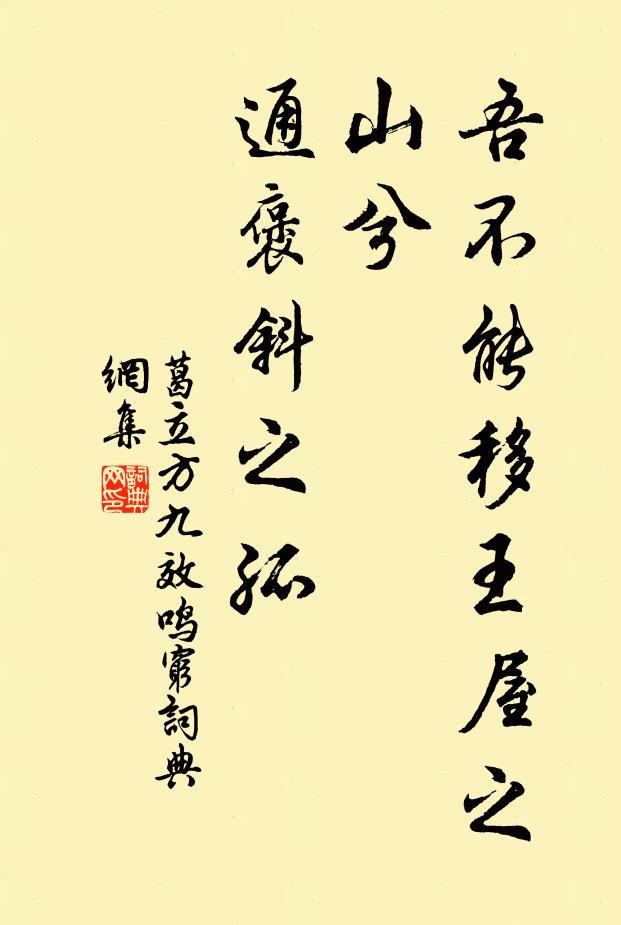 吾不能移王屋之
山兮
通褒斜之孤
葛立方九效鸣窮詞典
網集
詞典
网印